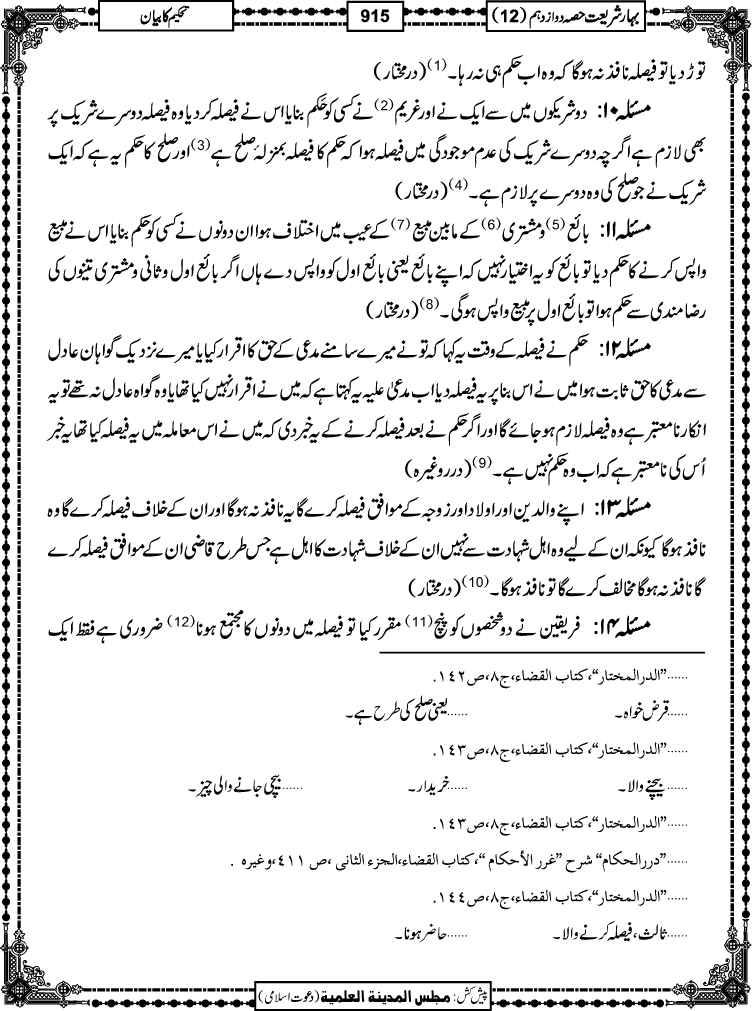 بہار شریعت حصہ دوازدہم (12)
915
تحکیم کا بیان
توڑ دیا تو فیصلہ نافذ نہ ہوگا کہ وہ اب حکم ہی نہ رہا۔(1) (درمختار)
مسئلہ ۱۰: دو شریکوں میں سے ایک نے اور غریم(2) نے کسی کو حکم بنایا اس نے فیصلہ کر دیا وہ فیصلہ دوسرے شریک پر
بھی لازم ہے اگرچہ دوسرے شریک کی عدم موجودگی میں فیصلہ ہوا کہ حکم کا فیصلہ بمنزلۂ صلح ہے(3) اور صلح کا حکم یہ ہے کہ ایک
شریک نے جو صلح کی وہ دوسرے پر لازم ہے۔(4) (درمختار)
مسئلہ ۱۱: بائع(5) و مشتری(6) کے مابین مبیع(7) کے عیب میں اختلاف ہوا ان دونوں نے کسی کو حکم بنایا اس نے مبیع
واپس کرنے کا حکم دیا تو بائع کو یہ اختیار نہیں کہ اپنے بائع یعنی بائع اول کو واپس دے ہاں اگر بائع اول و ثانی و مشتری تینوں کی
رضامندی سے حکم ہوا تو بائع اول پر مبیع واپس ہوگی۔(8) (درمختار)
مسئلہ ۱۲: حکم نے فیصلہ کے وقت یہ کہا کہ تو نے میرے سامنے مدعی کے حق کا اقرار کیا یا میرے نزدیک گواہان عادل
سے مدعی کا حق ثابت ہوا میں نے اس بنا پر یہ فیصلہ دیا اب مدعیٰ علیہ یہ کہتا ہے کہ میں نے اقرار نہیں کیا تھا یا وہ گواہ عادل نہ تھے تو یہ
انکار نامعتبر ہے وہ فیصلہ لازم ہو جائے گا اور اگر حکم نے بعد فیصلہ کرنے کے یہ خبر دی کہ میں نے اس معاملہ میں یہ فیصلہ کیا تھا یہ خبر
اُس کی نامعتبر ہے کہ اب وہ حکم نہیں ہے۔(9) (درر وغیرہ)
مسئلہ ۱۳: اپنے والدین اور اولاد اور زوجہ کے موافق فیصلہ کرے گا یہ نافذ نہ ہوگا اور ان کے خلاف فیصلہ کرے گا وہ
نافذ ہوگا کیونکہ ان کے لیے وہ اہل شہادت سے نہیں ان کے خلاف شہادت کا اہل ہے جس طرح قاضی ان کے موافق فیصلہ کرے
گا نافذ نہ ہوگا مخالف کرے گا تو نافذ ہوگا۔(10) (درمختار)
مسئلہ ۱۴: فریقین نے دو شخصوں کو پنچ(11) مقرر کیا تو فیصلہ میں دونوں کا مجتمع ہونا(12) ضروری ہے فقط ایک
......”الدرالمختار“،کتاب القضاء،ج۸،ص۱٤۲.
......قرض خواہ۔ ......یعنی صلح کی طرح ہے۔
......”الدرالمختار“،کتاب القضاء،ج۸،ص۱٤۳.
......بیچنے والا۔ ......خریدار۔ ......بیچی جانے والی چیز۔
......”الدرالمختار“،کتاب القضاء،ج۸،ص۱٤۳.
......”دررالحکام“ شرح ”غرر الأحکام“،کتاب القضاء،الجزء الثانی ،ص ٤۱۱،وغیرہ .
......”الدرالمختار“،کتاب القضاء،ج۸،ص۱٤٤.
......ثالث، فیصلہ کرنے والا۔ ......حاضر ہونا۔
پیش کش: مجلس المدینة العلمیة (دعوت اسلامی)